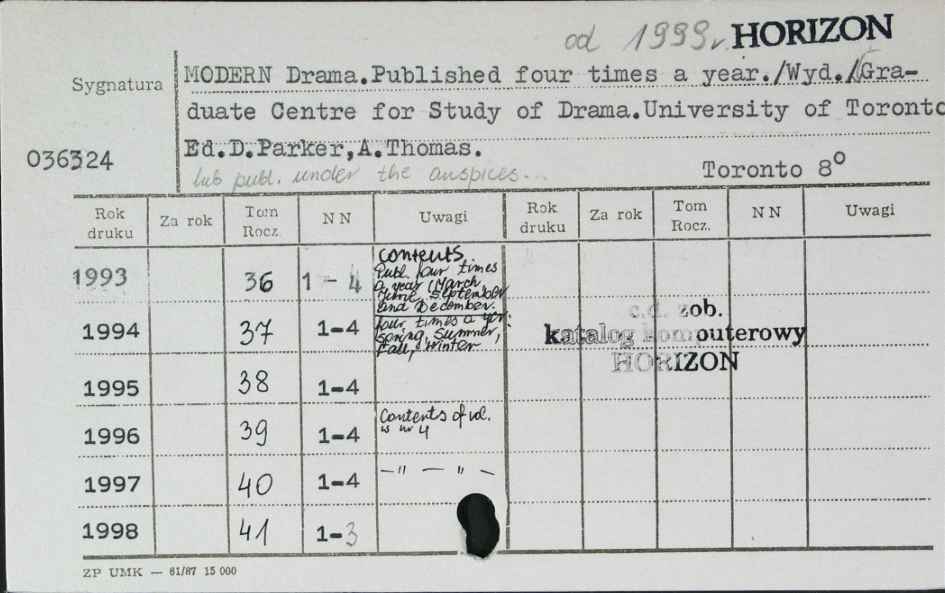 od 1999r. HORIZON
Sygnatura
MODERN Drama.Published four times a year./Wyd./Gra-
duate Centre for Study of Drama.University of Toronto
036324
Ed.D.Parker,A.Thomas.
lub publ. under the auspices...
Toronto 8º
Rok druku Za rok Tom Rocz. N N Uwagi Rok druku Za rok Tom Rocz. N N Uwagi
1993 36 1-4
contents.
Publ. four times
a year (March
June, September
and December.
1994 37 1-4
four times a yer:
spring, Summer,
Fall, Winter.
c.d. zob.
katalog komputerowy
HORIZON
1995 38 1-4
1996 39 1-4
Contents of vol.
is nr 4
1997 40 1-4 -"- "-
1998 41 1-3
ZP UMK — 61/87 15 000